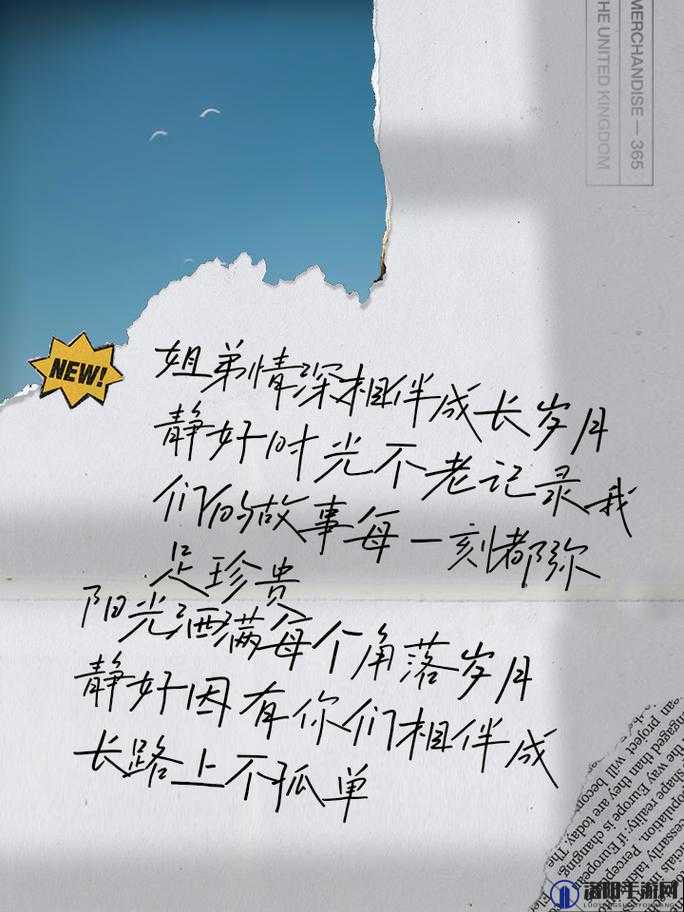 MERCHANDISE — 365
THE UNITED KINGDOM
NEW!
姐弟情深相伴成长岁月
静好时光不老记录我
们的故事每一刻都弥
足珍贵
阳光洒满每个角落岁月
静好因有你们相伴成
长路上不孤单
an project will become
ngaged than they are today. The
the way Europe is changing
shape reality: if European
population. Percep
cessarily take
cials in
洛阳手游网